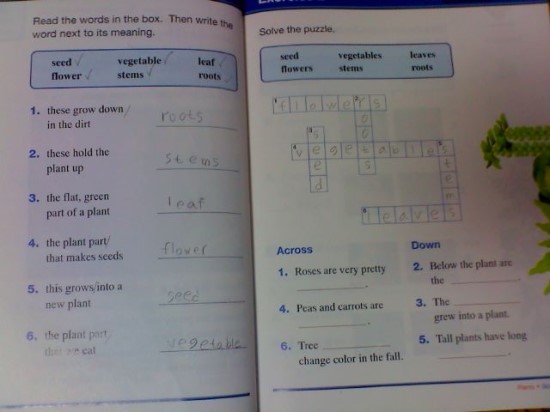 Read the words in the box. Then write the
word next to its meaning.
seed vegetable leaf
flower stems roots
1. these grow down/
in the dirt
roots
2. these hold the
plant up
stems
3. the flat, green
part of a plant
leaf
4. the plant part/
that makes seeds
flower
5. this grows/into a
new plant
seed
6. the plant part
that we eat
vegetable
Solve the puzzle.
seed vegetables leaves
flowers stems roots
1 flowe2rs
o
3s o
4vegetable5s
e s t
e e
d m
6leaves
Across
1. Roses are very pretty
.
4. Peas and carrots are
.
6. Tree
change color in the fall.
Down
2. Below the plant are
the .
3. The
grew into a plant.
5. Tall plants have long
.